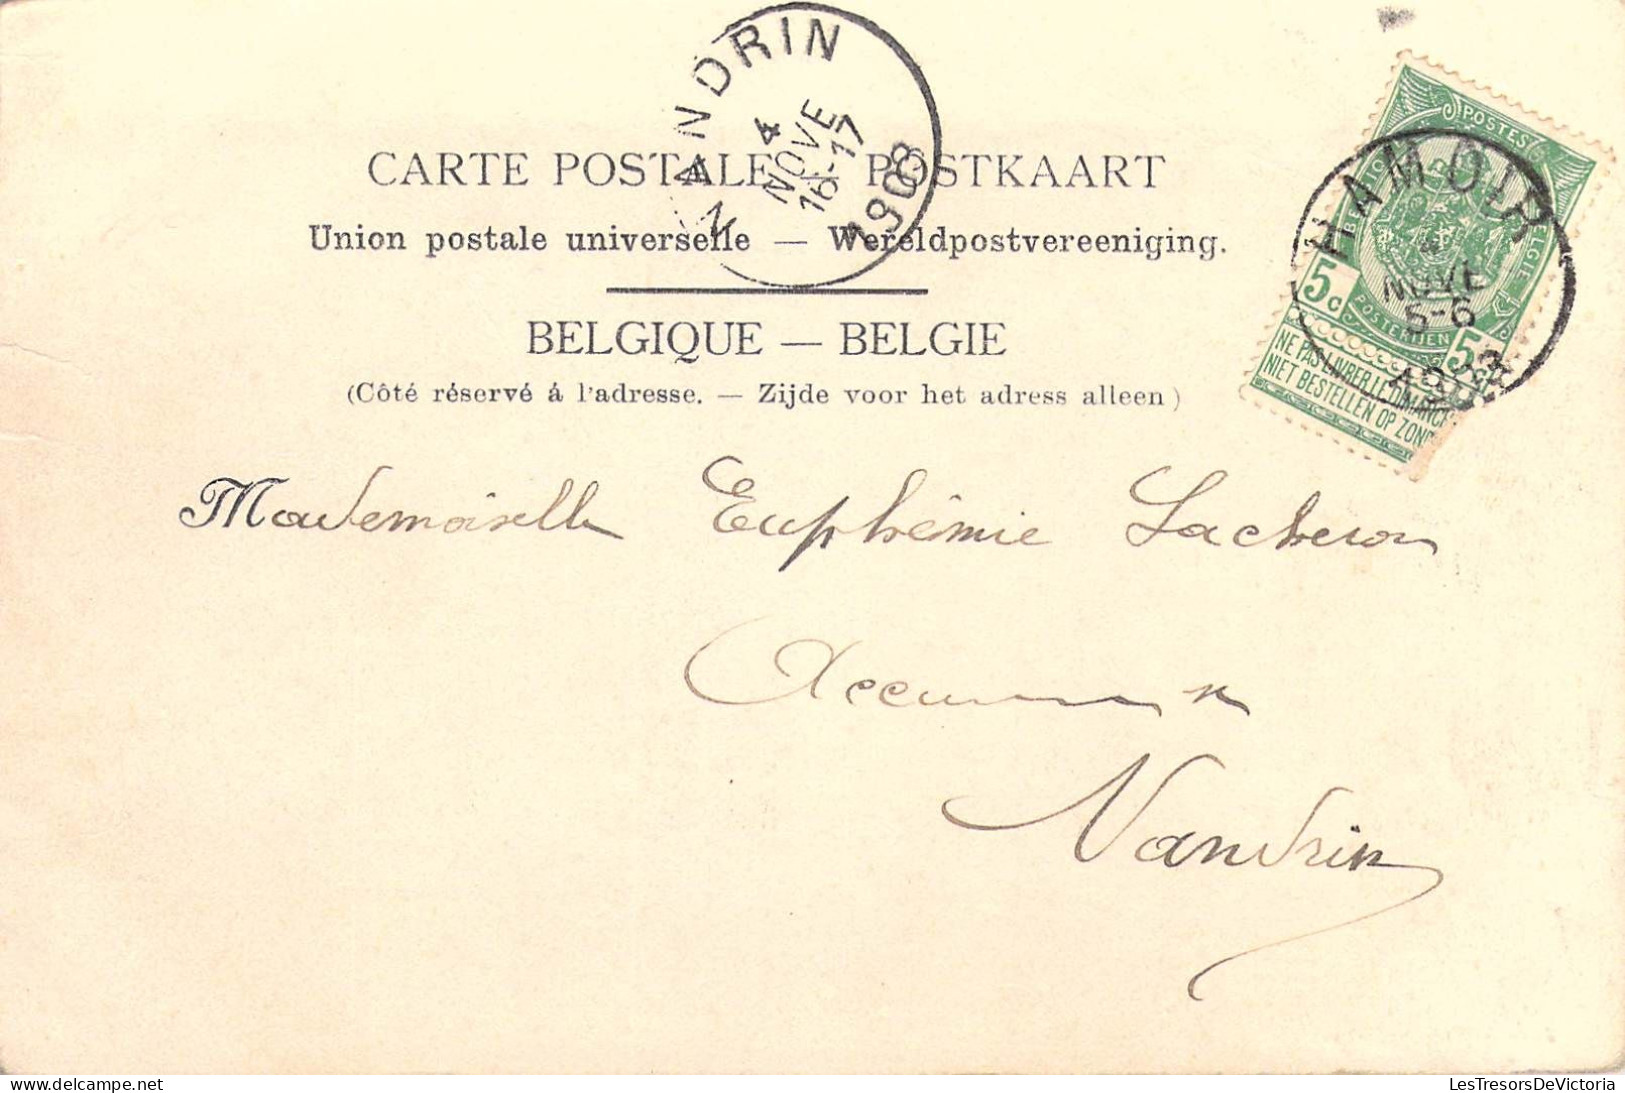 NANDRIN
4
NOVE
16-17
1903
CARTE POSTALE — POSTKAART
Union postale universelle — Wereldpostvereeniging.
BELGIQUE — BELGIE
(Côté réservé á l'adresse. — Zijde voor het adress alleen)
POSTES
BELGIE
5c
POSTERIJEN
5c
NE PAS LIVRER LE DIMANCHE
NIET BESTELLEN OP ZOND
HAMOIR
4
NOVE
5-6
1903
Mademoiselle Euphémie Lacheron
Nandrin
LesTresorsDeVictoria